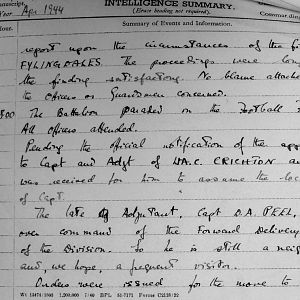 INTELLIGENCE SUMMARY.
(Erase heading not required).
Year Apr. 1944
Hour. Summary of Events and Information.
report upon the circumstances of the
FYLINGDALES. The proceedings were
the finding satisfactory. No blame attache
the Officers or Guardsmen concerned.
The Battalion paraded on the Football
All officers attended.
Pending the official notification of the app
to Capt and Adjt of CRICHTON
was received for him to assume the
of Capt.
The late Adjutant, Capt D.A. PEEL,
over command of the Forward Delivery
of the Division. So he is still a neig
and, we hope, a frequent visitor.
Orders were issued for the move to